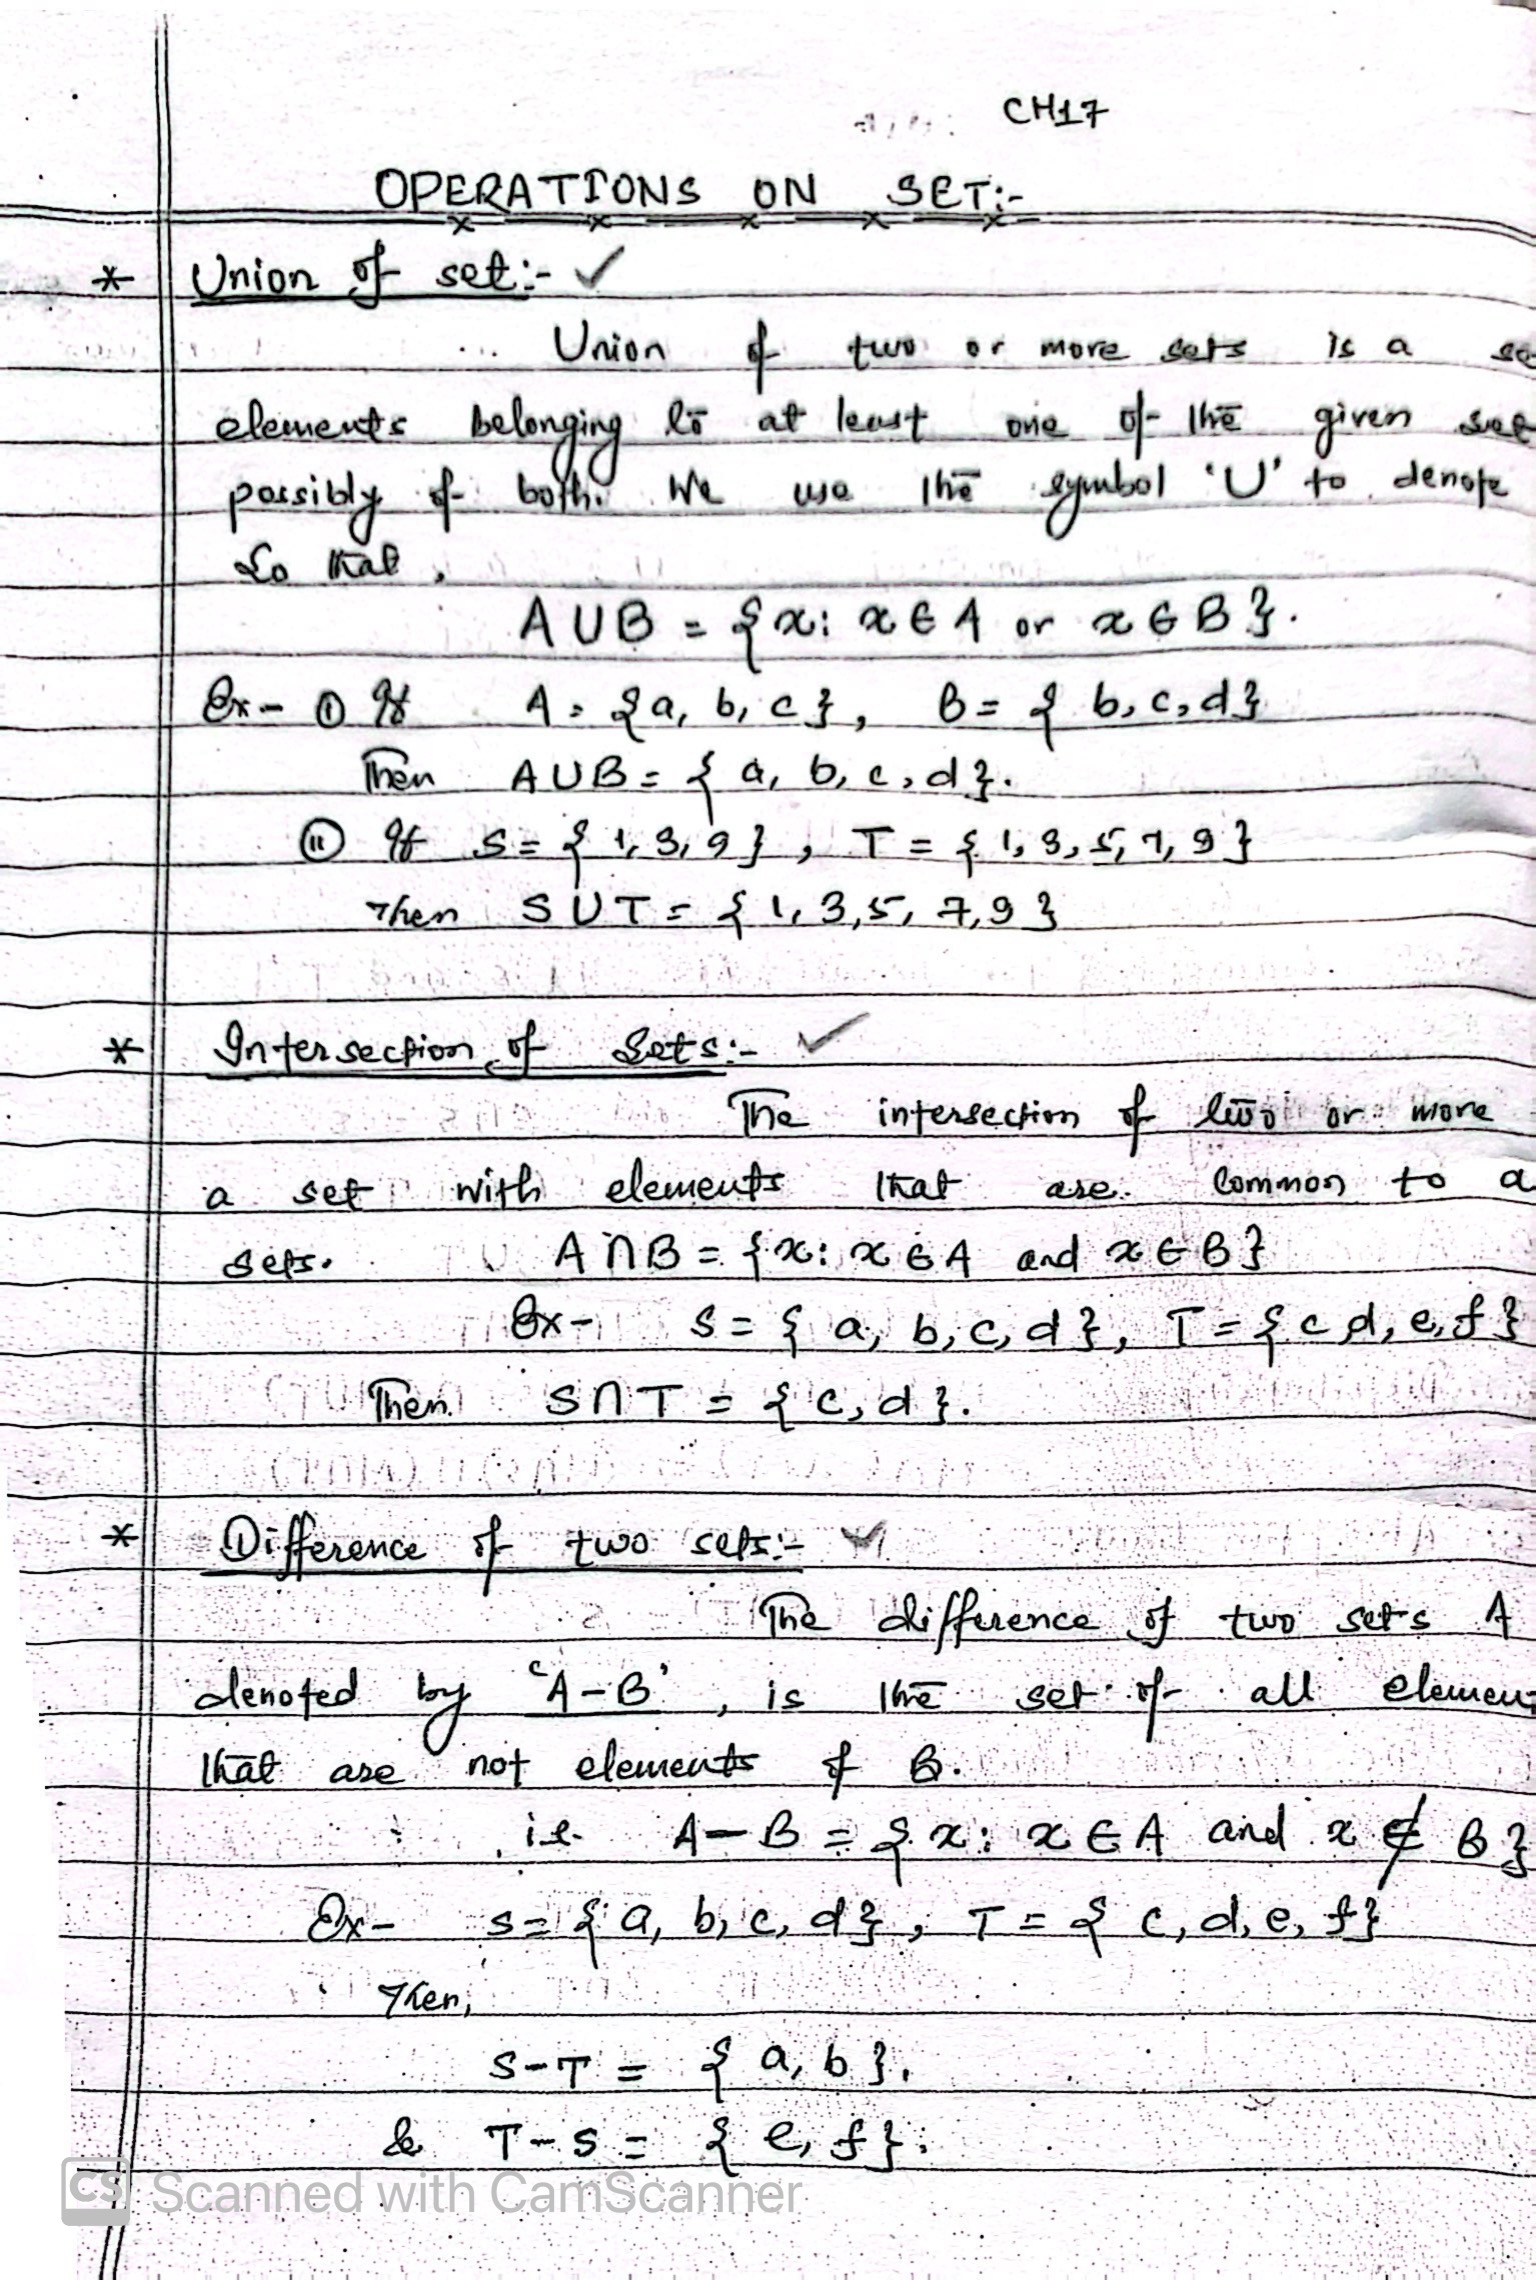 CH17
OPERATIONS ON SET:-
* Union of set:- ✓
Union of two or more sets is a
elements belonging to at least one of the given
possibly of both. We use the symbol 'U' to denote
So that,
A∪B = {x: x∈A or x∈B}.
Ex- (i) If A = {a, b, c}, B = {b, c, d}
Then A∪B = {a, b, c, d}.
(ii) If S = {1, 3, 9}, T = {1, 3, 5, 7, 9}
Then S∪T = {1, 3, 5, 7, 9}
* Intersection of Sets:- ✓
The intersection of two or more
a set with elements that are common to a
sets. A∩B = {x: x∈A and x∈B}
Ex- S = {a, b, c, d}, T = {c d, e, f}
Then S∩T = {c, d}.
* Difference of two sets:- ✓
The difference of two sets A
denoted by 'A-B', is the set of all elemen
that are not elements of B.
i.e. A-B = {x: x∈A and x∉B}
Ex- S = {a, b, c, d}, T = {c, d, e, f}
Then,
S-T = {a, b}.
& T-S = {e, f}.
CS Scanned with CamScanner